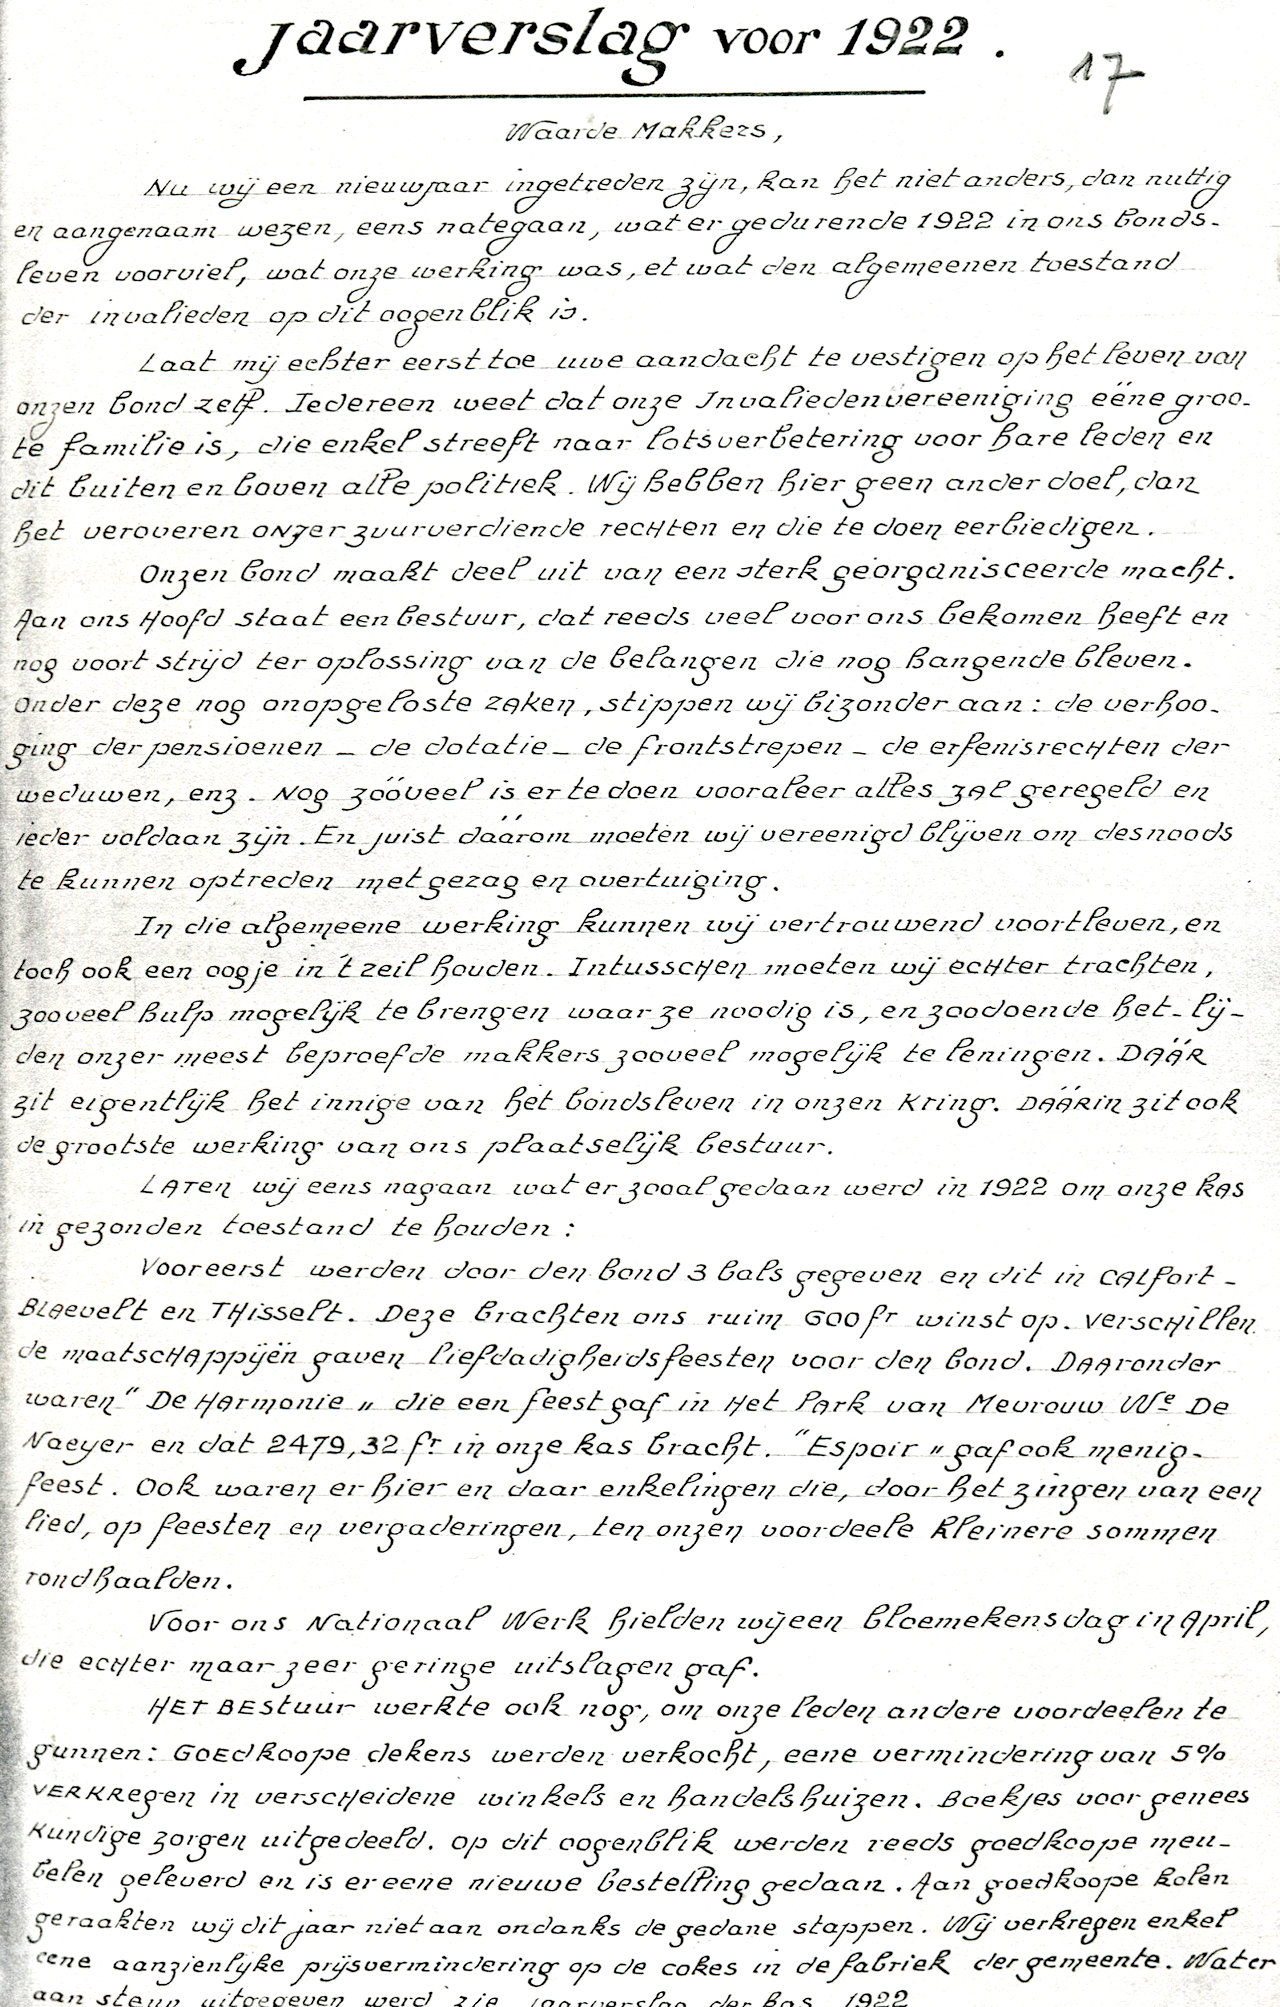 Jaarverslag voor 1922.
17
Waarde Makkers,
Nu wij een nieuwjaar ingetreden zijn, kan het niet anders, dan nuttig
en aangenaam wezen, eens nategaan, wat er gedurende 1922 in ons bonds-
leven voorviel, wat onze werking was, et wat den algemeenen toestand
der invalieden op dit oogenblik is.
Laat mij echter eerst toe uwe aandacht te vestigen op het leven van
onzen bond zelf. Iedereen weet dat onze Invaliedenvereeniging ééne groo-
te familie is, die enkel streeft naar lotsverbetering voor hare leden en
dit buiten en boven alle politiek. Wij hebben hier geen ander doel, dan
het veroveren onzer zuurverdiende rechten en die te doen eerbiedigen.
Onzen bond maakt deel uit van een sterk georganisceerde macht.
Aan ons Hoofd staat een bestuur, dat reeds veel voor ons bekomen heeft en
nog voort strijd ter oplossing van de belangen die nog hangende bleven.
Onder deze nog onopgeloste zaken, stippen wij bizonder aan: de verhoo-
ging der pensioenen - de dotatie - de frontstrepen - de erfenisrechten der
weduwen, enz. Nog zóóveel is er te doen vooraleer alles zal geregeld en
ieder voldaan zijn. En juist dáárom moeten wij vereenigd blijven om desnoods
te kunnen optreden met gezag en overtuiging.
In die algemeene werking kunnen wij vertrouwend voortleven, en
toch ook een oogje in 't zeil houden. Intusschen moeten wij echter trachten,
zooveel hulp mogelijk te brengen waar ze noodig is, en zoodoende het lij-
den onzer meest beproefde makkers zooveel mogelijk te leningen. DÁÁR
zit eigentlijk het innige van het bondsleven in onzen Kring. DÁÁRin zit ook
de grootste werking van ons plaatselijk bestuur.
Laten wij eens nagaan wat er zooal gedaan werd in 1922 om onze kas
in gezonden toestand te houden:
Vooreerst werden door den bond 3 bals gegeven en dit in Calfort -
Blaevelt en Thisselt. Deze brachten ons ruim 600 fr winst op. Verschillen
de maatschappijën gaven liefdadigheidsfeesten voor den bond. Daaronder
waren "De Harmonie" die een feest gaf in Het Park van Mevrouw We De
Naeyer en dat 2479,32 fr in onze kas bracht. "Espoir" gaf ook menig-
feest. Ook waren er hier en daar enkelingen die, door het zingen van een
lied, op feesten en vergaderingen, ten onzen voordeele kleinere sommen
rondhaalden.
Voor ons Nationaal Werk hielden wij een bloemekensdag in April,
die echter maar zeer geringe uitslagen gaf.
Het Bestuur werkte ook nog, om onze leden andere voordeelen te
gunnen: Goedkoope dekens werden verkocht, eene vermindering van 5%
verkregen in verscheidene winkels en handelshuizen. Boekjes voor genees
kundige zorgen uitgedeeld. Op dit oogenblik werden reeds goedkoope meu-
belen geleverd en is er eene nieuwe bestelling gedaan. Aan goedkoope kolen
geraakten wij dit jaar niet aan ondanks de gedane stappen. Wij verkregen enkel
eene aanzienlijke prijsvermindering op de cokes in de fabriek der gemeente. Wat er
aan steun uitgegeven werd zie jaarverslag der kas 1922